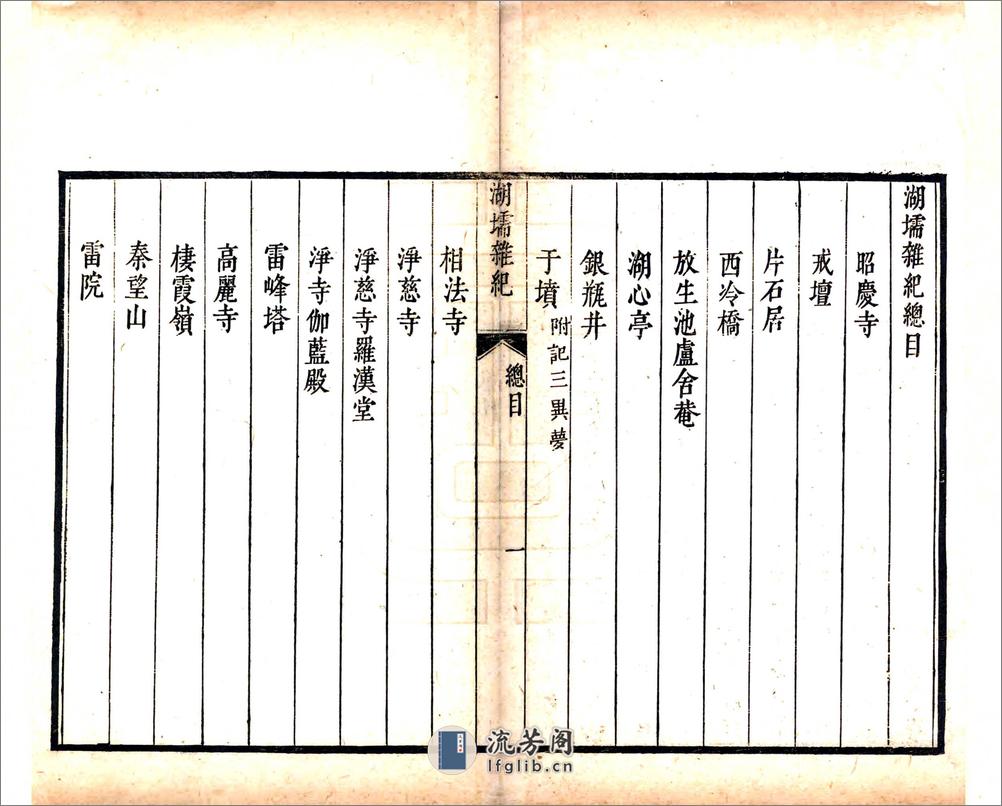 湖壖雜紀總目
昭慶寺
戒壇
片石居
西泠橋
放生池盧舍菴
湖心亭
銀瓶井
于墳 附記三異夢
湖壖雜紀 總目 一
相法寺
淨慈寺
淨慈寺羅漢堂
淨寺伽藍殿
雷峰塔
高麗寺
棲霞嶺
秦望山
雷院
流芳阁
lfglib.cn